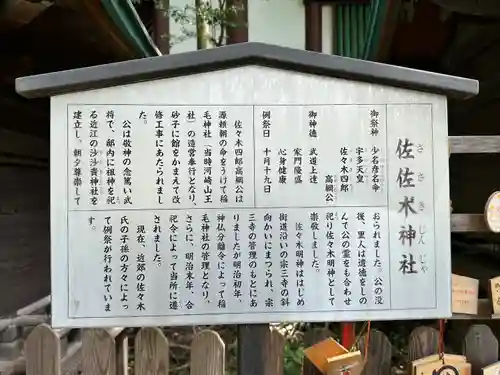 佐佐木神社
ささきじんじゃ
御祭神　少名彦名命
宇多天皇
佐々木四郎
高綱公
御神徳　武道上達
家門隆盛
心身健康
例祭日　十月十九日
佐々木四郎高綱公は
源頼朝の命をうけて稲
毛神社（当時河崎山王
社）の造営奉行となり、
砂子に館をかまえて改
修工事にあたられまし
た。
公は敬神の念篤い武
将で、邸内に祖神を祀
る近江の沙沙貴神社を
建立し、朝夕尊崇して
おられました。公の没
後、里人は遺徳をしの
んで公の霊をも合わせ
祀り佐々木明神として
崇敬しました。
佐々木明神ははじめ
街道沿いの宗三寺の斜
向かいにまつられ、宗
三寺の管理のもとにあ
りましたが明治初年、
神仏分離令によって稲
毛神社の管理となり、
さらに、明治末年、合
祀令によって当所に遷
されました。
現在、近郊の佐々木
氏の子孫の方々によっ
て例祭が行われていま
す。